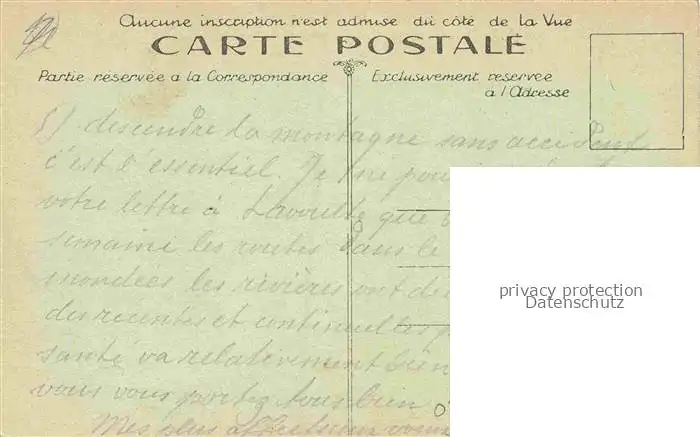 Aucune inscription n'est admise du côté de la Vue
CARTE POSTALE
Partie réservée a la Correspondance
Exclusivement reservee
a l'Adresse
5) descendre la montagne sans accident
c'est l'essentiel. Je ne
votre lettre à Lavoulte que
semaine les routes dans le
mondées les rivières ont
des récentes et continuelles
santé va relativement bien
vous vous portez tous bien
Mes plus affectueux
privacy protection
Datenschutz